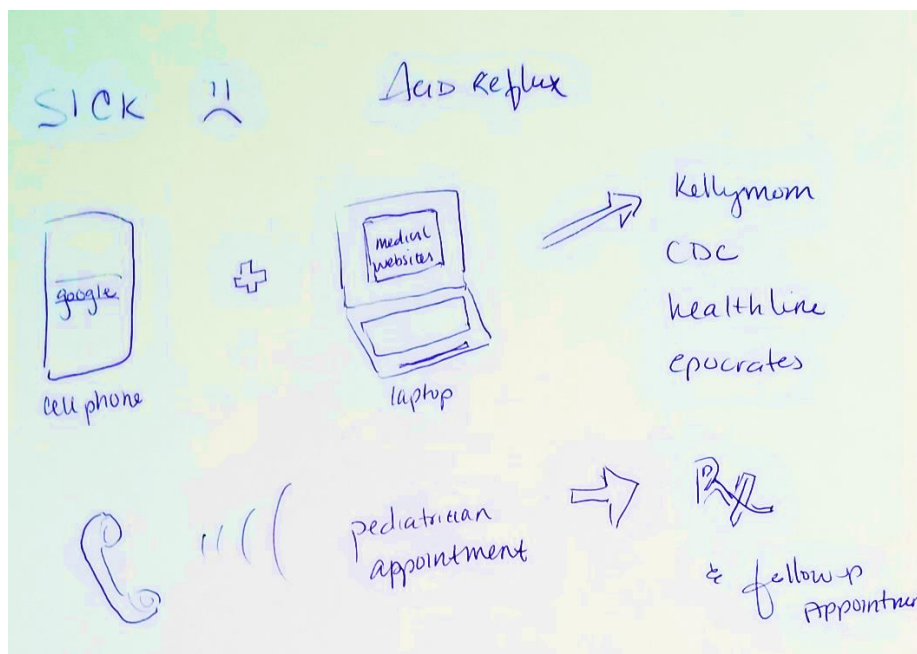 SICK
Acid Reflux
google
cell phone
medical
websites
laptop
Kellymom
CDC
healthline
epocrates
pediatrician
appointment
Rx
& followup
Appointmen